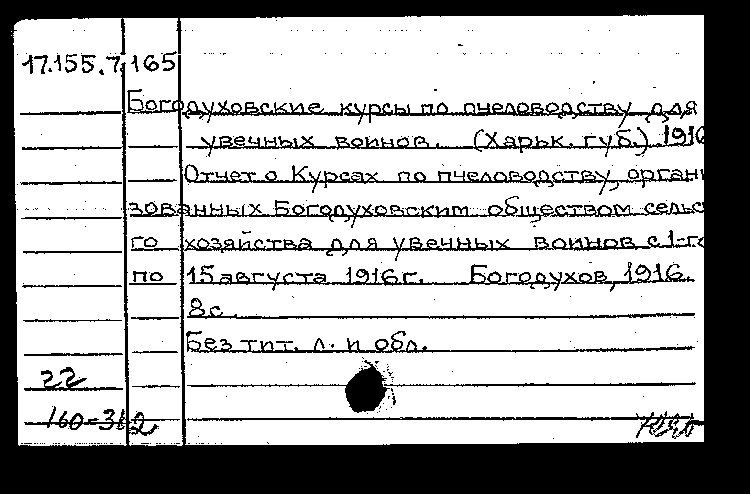 17.155.7.165
Богодуховские курсы по пчеловодству для
увечных воинов. (Харьк. губ.) 1916
Отчет о Курсах по пчеловодству, органи
зованных Богодуховским обществом сельс
го хозяйства для увечных воинов с 1-го
по 15 августа 1916 г. Богодухов, 1916.
8 с.
Без тит. л. и обл.
22
160-312